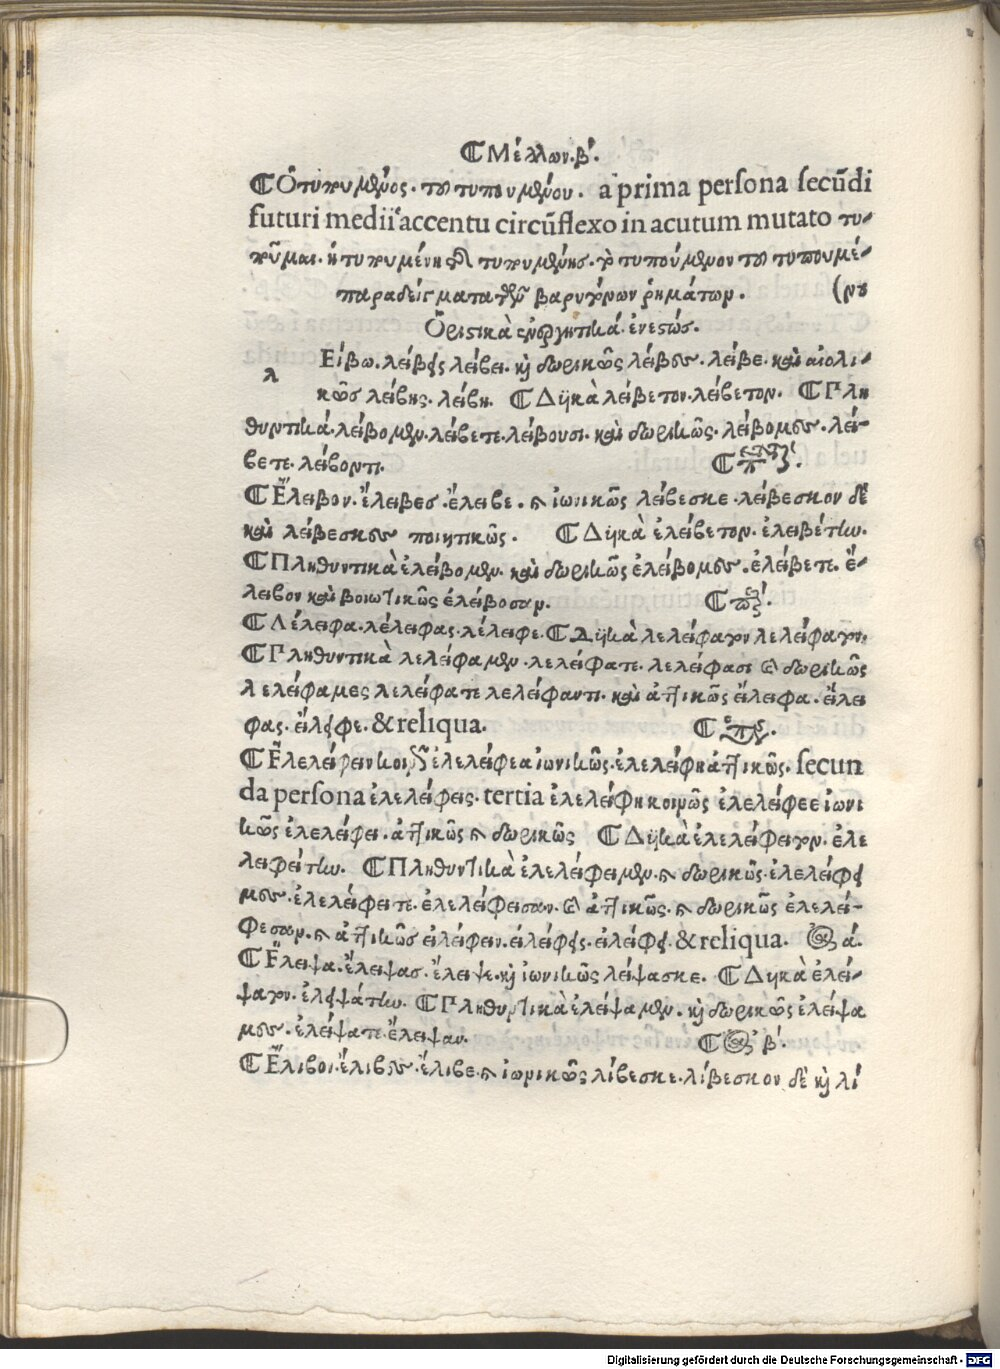 Μέλλων. β´.
Ὁ τυπυμενος. τοῦ τυπουμένου. a prima persona secūdi
futuri medii accentu circūflexo in acutum mutato τυ-
ποῦμαι. ἡ τυπυμένη τῆς τυπυμένης. τὸ τυπούμενον τοῦ τυπουμέ-
παραδείγματα τῶν βαρυτόνων ῥημάτων. (νου
Ὁριστικὰ ἐνεργητικά. ἐνεστώς.
λ
Είβω. λείβεις λείβει. καὶ δωρικῶς λείβες. λείβε. καὶ αἰολι-
κῶς λείβης. λείβη. Δυϊκὰ λείβετον. λείβετον. Πλη
θυντικά. λείβομεν. λείβετε. λείβουσι. καὶ δωρικῶς. λείβομες. λεί-
βετε. λείβοντι.
Ἔλειβον. ἔλειβες. ἔλειβε. καὶ ἰωνικῶς λείβεσκε. λείβεσκον δὲ
καὶ λείβεσκες ποιητικῶς. Δυϊκὰ ἐλείβετον. ἐλειβέτην.
Πληθυντικὰ ἐλείβομεν. καὶ δωρικῶς ἐλείβομες. ἐλείβετε. ἔ-
λειβον καὶ βοιωτικῶς ἐλείβοσαν.
Λέλειφα. λέλειφας. λέλειφε. Δυϊκὰ λελείφατον λελείφατον.
Πληθυντικὰ λελείφαμεν. λελείφατε. λελείφασι καὶ δωρικῶς
λελείφαμες λελείφατε λελείφαντι. καὶ ἀττικῶς εἴλειφα. εἴλει
φας. εἴλειφε. & reliqua.
Ἐλελείφειν κοινῶς ἐλελείφεα ἰωνικῶς. ἐλελείφη ἀττικῶς. secun
da persona ἐλελείφεις. tertia ἐλελείφη κοινῶς ἐλελείφεε ἰωνι
κῶς ἐλελείφει. ἀττικῶς καὶ δωρικῶς Δυϊκὰ ἐλελείφειτον. ἐλε
λειφείτην. Πληθυντικὰ ἐλελείφειμεν. καὶ δωρικῶς. ἐλελείφει
μες. ἐλελείφειτε. ἐλελείφεισαν. καὶ ἀττικῶς. καὶ δωρικῶς ἐλελεί-
φεσαν. καὶ ἀττικῶς εἰλείφειν. εἰλείφεις. εἰλείφει. & reliqua. ά.
Ἔλειψα. ἔλειψας. ἔλειψε. καὶ ἰωνικῶς λείψασκε. Δυϊκὰ ἐλεί-
ψατον. ἐλειψάτην. Πληθυντικὰ ἐλείψαμεν. καὶ δωρικῶς ἐλείψα
μες. ἐλείψατε ἔλειψαν. β´.
Ἔλιβον. ἔλιβες. ἔλιβε. καὶ ἰωνικῶς λίβεσκε. λίβεσκον δὲ καὶ λί
Digitalisierung gefördert durch die Deutsche Forschungsgemeinschaft - DFG